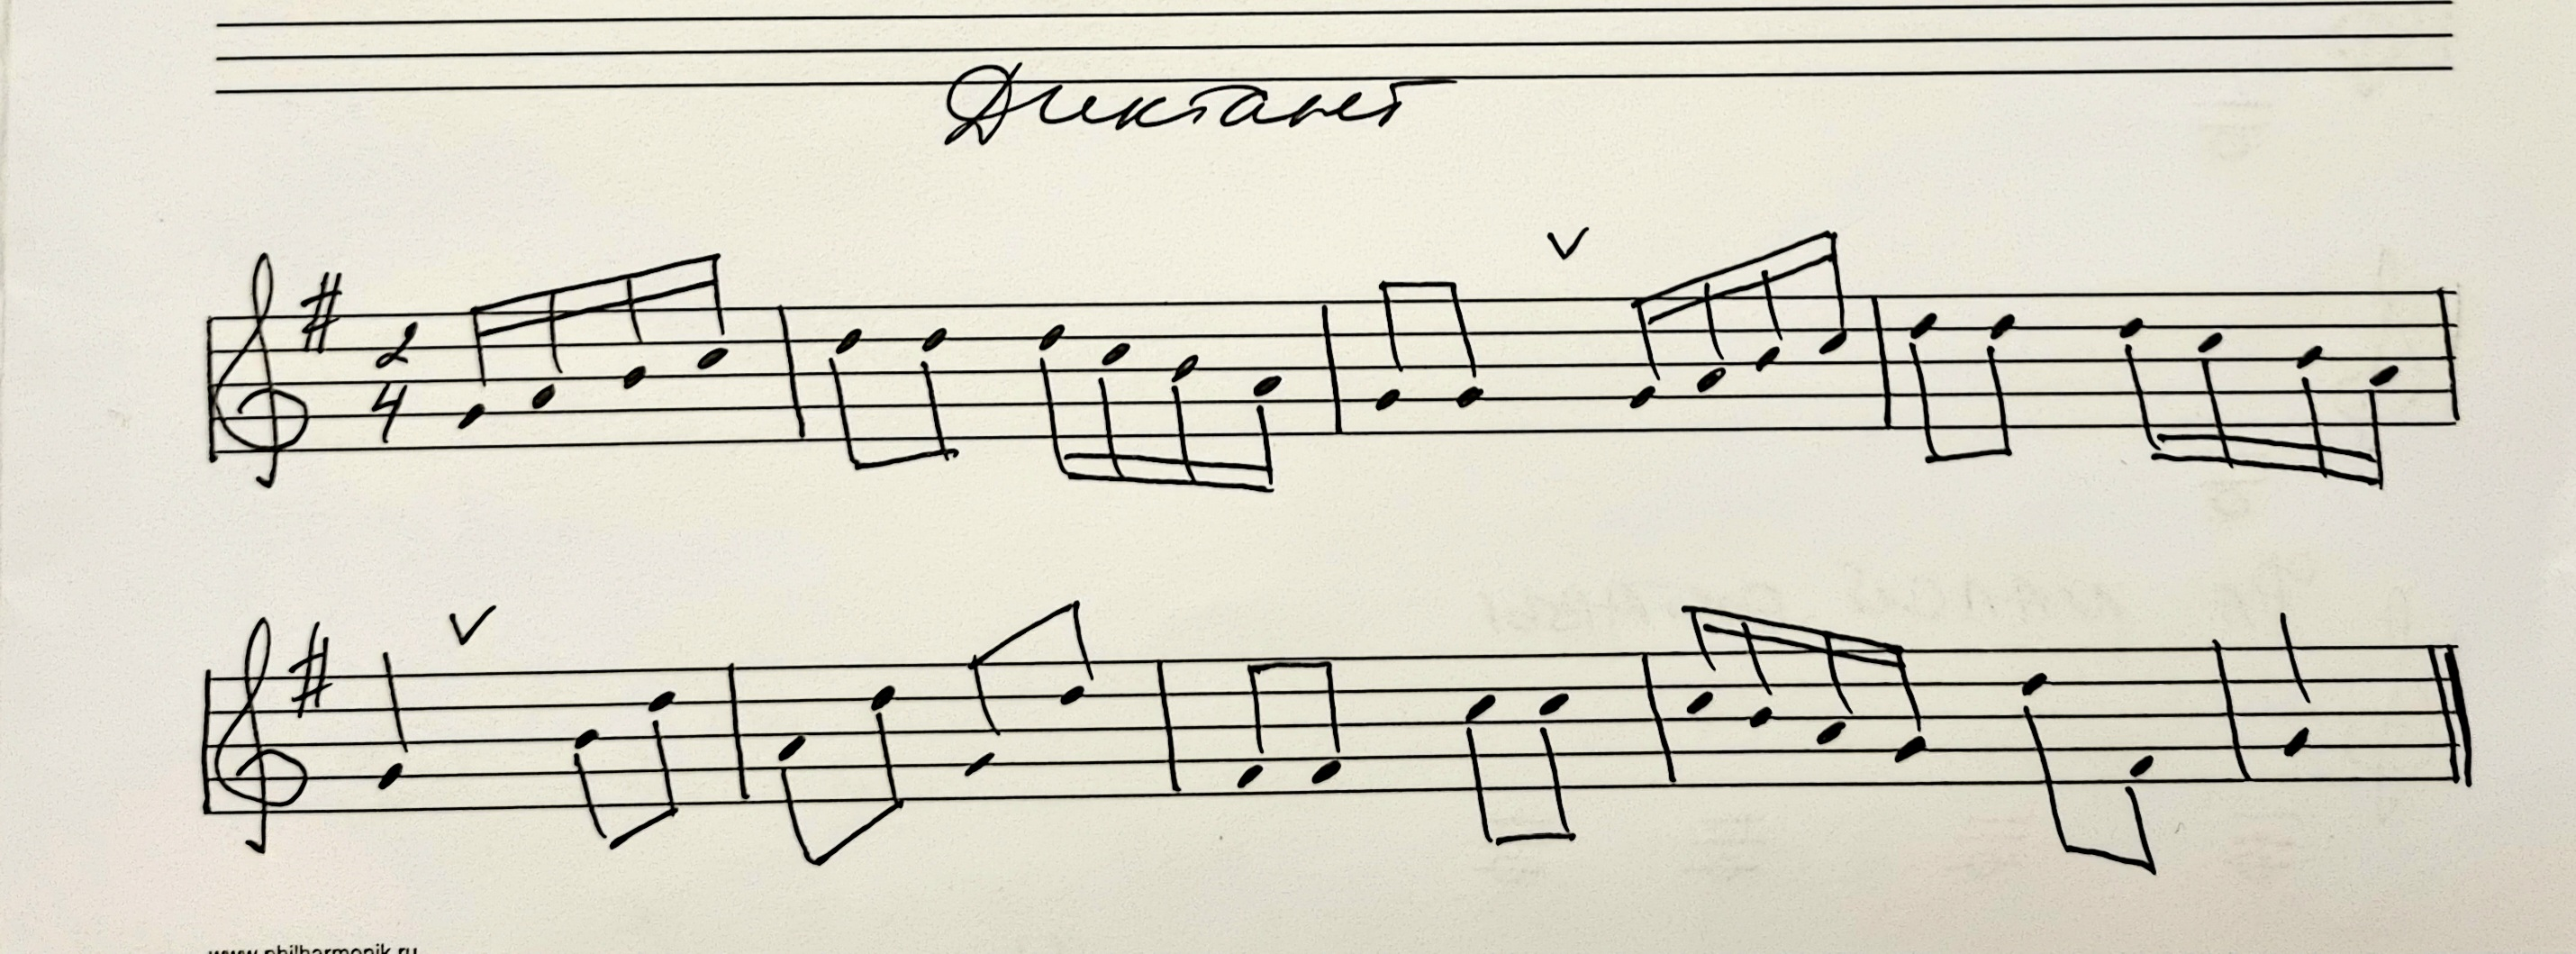 Диктант
2
4
www.philharmonik.ru